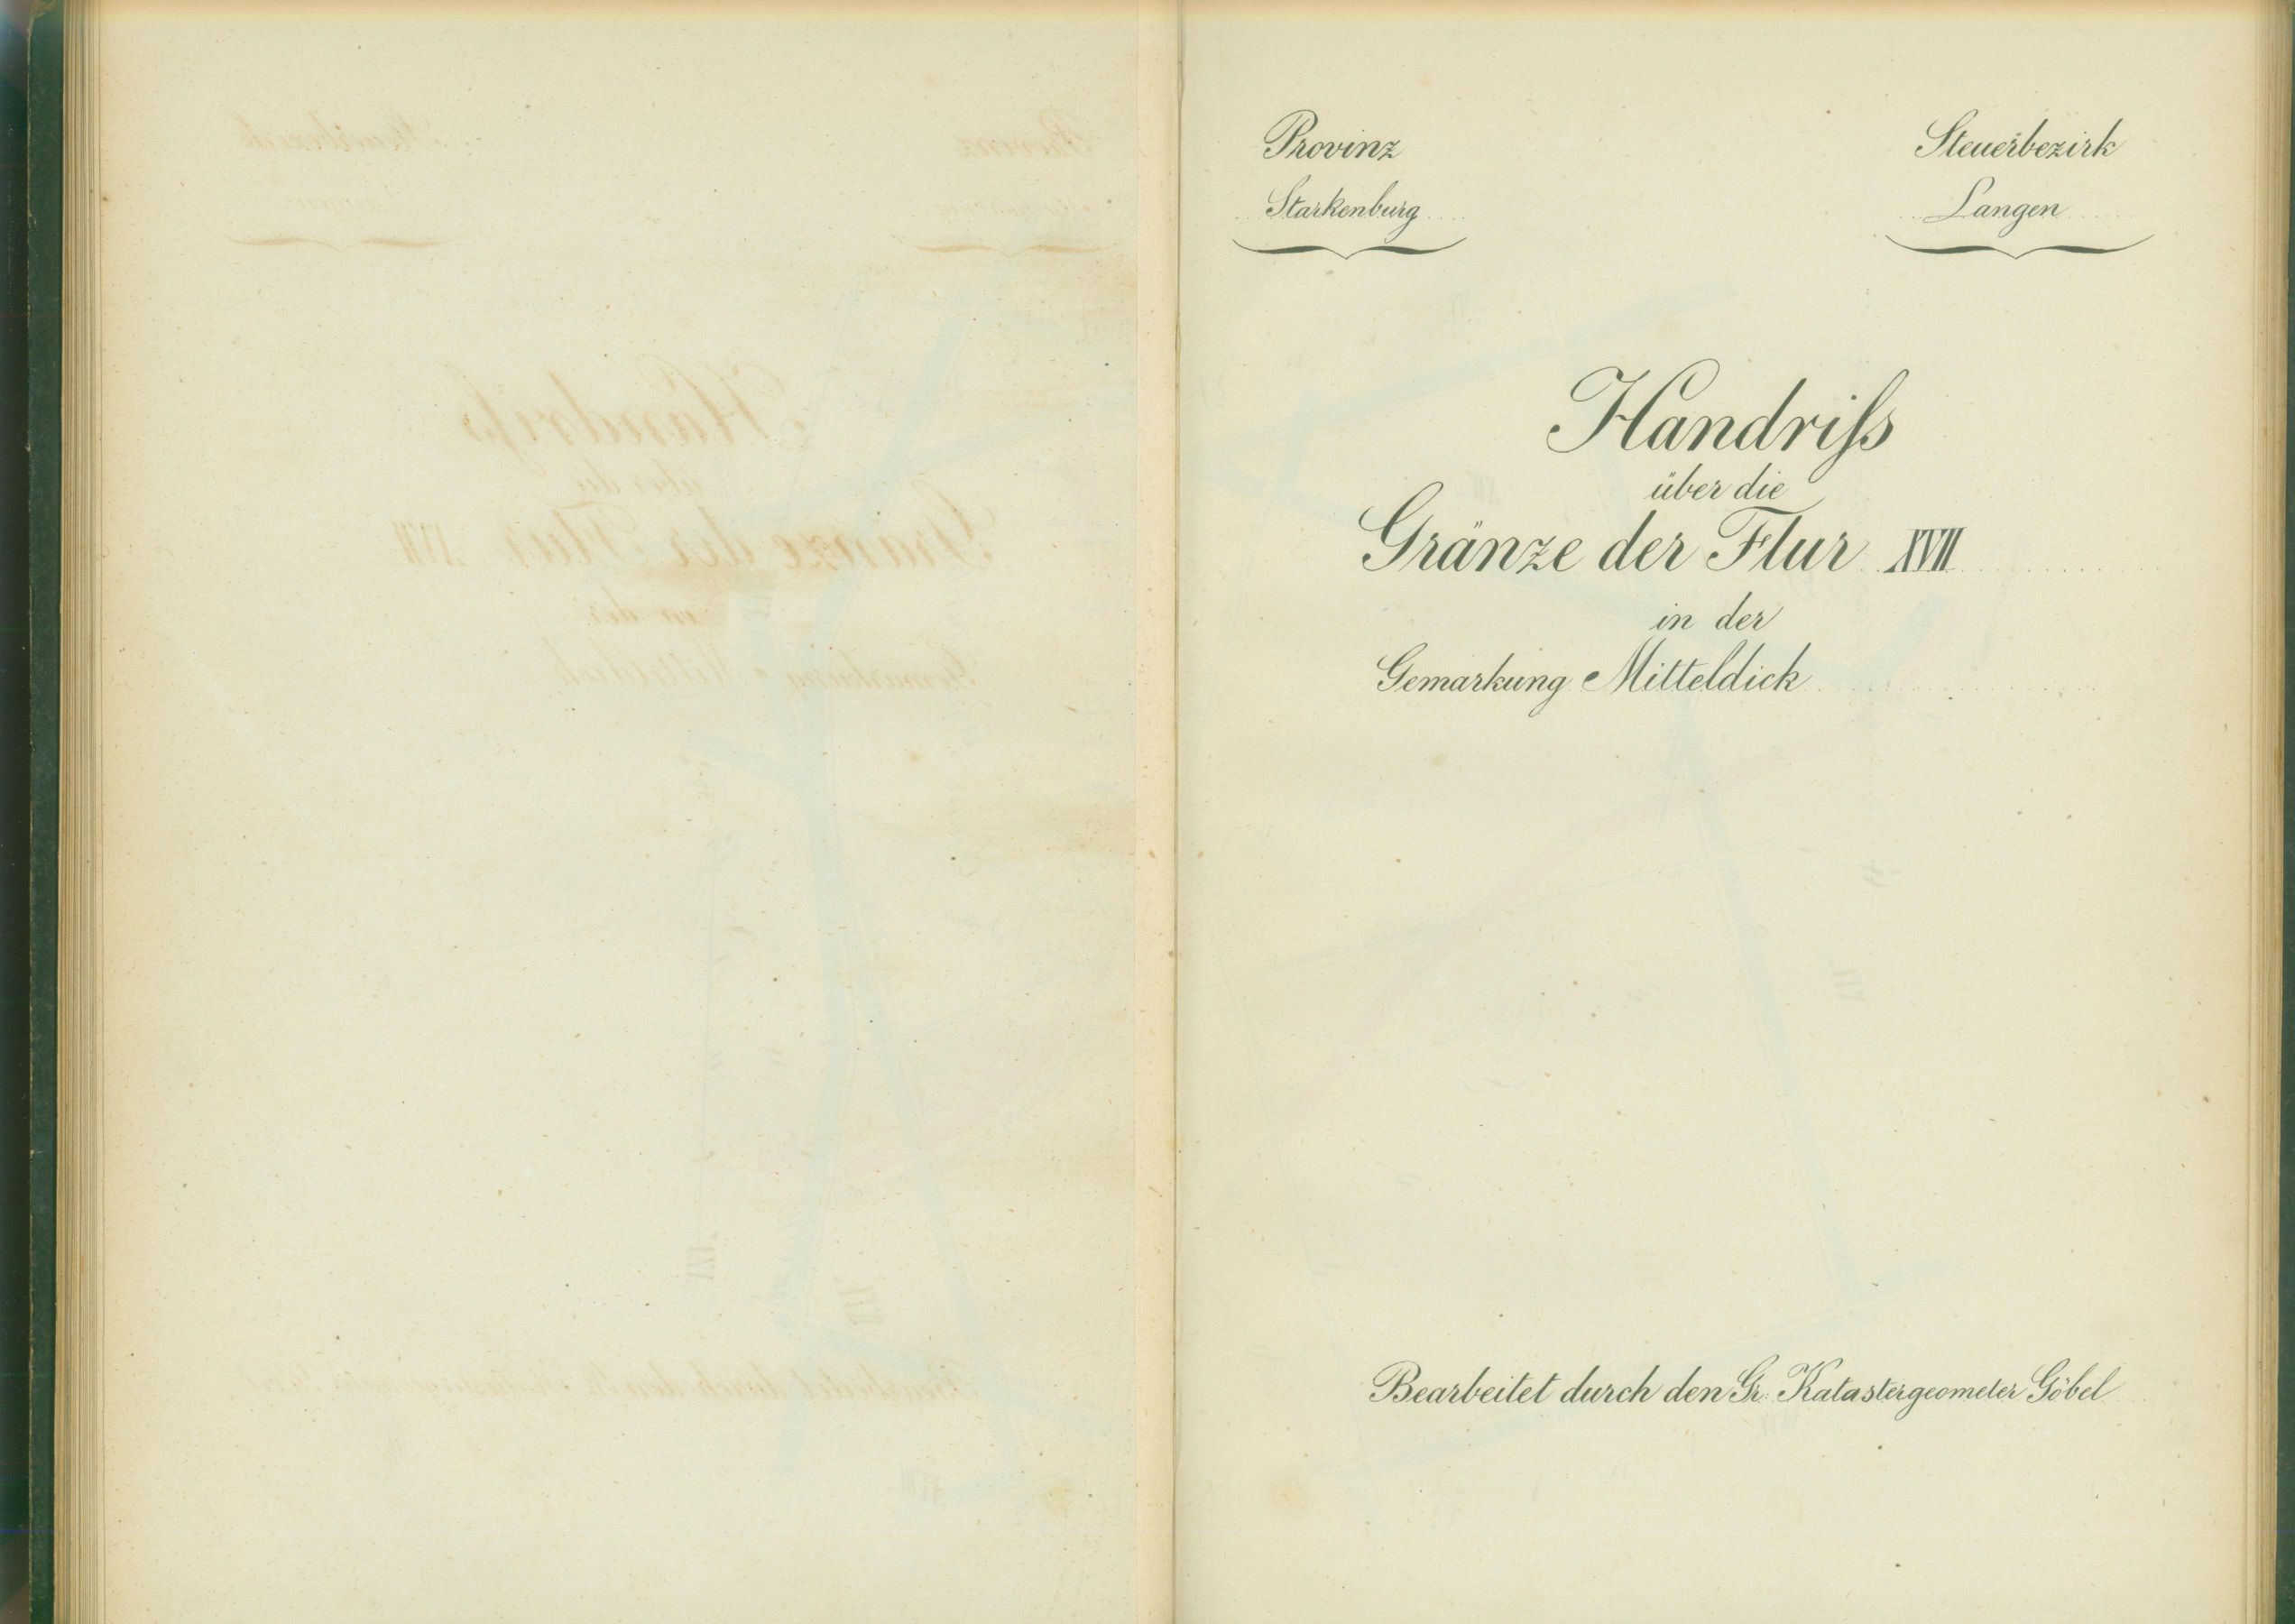 Provinz
Starkenburg
Steuerbezirk
Langen
Handriſs
über die
Gränze der Flur XVII
in der
Gemarkung Mitteldick
Bearbeitet durch den Gr. Katastergeometer Göbel